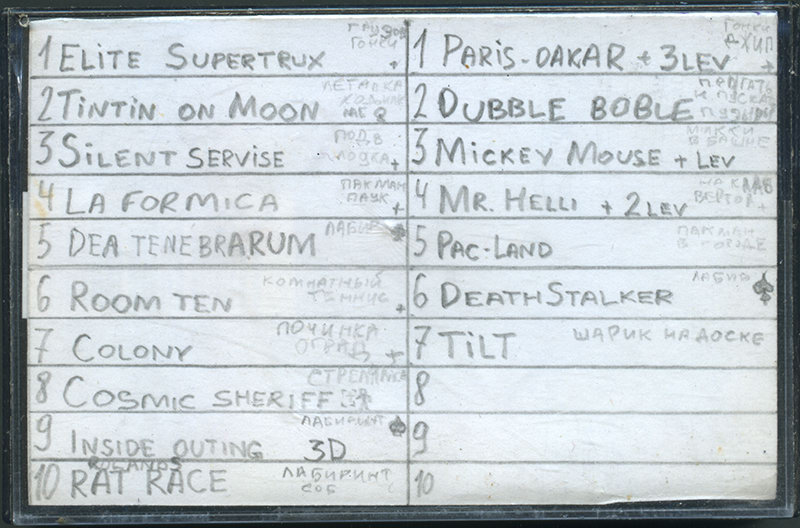 1 ELITE SUPERTRUX ГРУЗОВ
ГОНКИ +
2 TINTIN ON MOON ЛЕТАЛКА
3 SILENT SERVISE ПОДВ
ЛОДКА +
4 LA FORMICA ПАКМАН
ПАУК +
5 DEA TENEBRARUM ЛАБИР
6 ROOM TEN КОМНАТНЫЙ
ТЕННИС +
7 COLONY ПОЧИНКА
ОГРАД +
8 COSMIC SHERIFF СТРЕЛЯЛКА
9 INSIDE OUTING 3D ЛАБИРИНТ
ROLANDS
10 RAT RACE ЛАБИРИНТ
СОБ
1 PARIS-DAKAR + 3LEV ГОНКИ
ДЖИП +
2 DUBBLE BOBLE ПРЫГАТЬ
И ПУСКАТ
ПУЗЫРИ
3 MICKEY MOUSE + LEV МИККИ
В БАШНЕ
4 MR. HELLI + 2LEV
ВЕРТОЛ +
5 PAC-LAND ПАКМАН
В ГОРОДЕ
6 DEATHSTALKER ЛАБИР
7 TILT ШАРИК НА ДОСКЕ
8
9
10